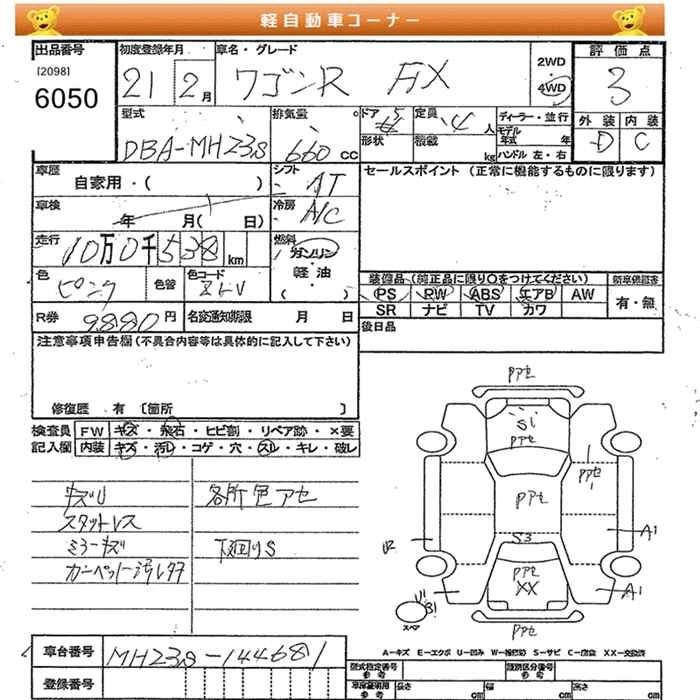 軽自動車コーナー
出品番号 初度登録年月 車名・グレード 2WD 4WD 評価点
[2098]
6050 21 2月 ワゴンR FX 3
型式 排気量 ドア 定員 ディーラー・並行 外装 内装
DBA-MH23S 660cc 5 4人 モデル年式 年 D C
形状 積載 kg ハンドル 左・右
車歴 自家用・( ) シフト AT セールスポイント (正常に機能するものに限ります)
車検 年 月( 日) 冷房 A/C
走行 10万0千538km 燃料 ガソリン・軽油・( )
色 ピンク 色替 色コード 装備品 (純正品に限り○をつけてください) 新車保証書
PS PW ABS エアB AW 有・無
SR ナビ TV カワ
R券 9880円 名変通知期限 月 日 後日品
注意事項申告欄 (不具合内容等は具体的に記入して下さい)
修復歴 有 [箇所 ]
検査員 FW キズ・飛石・ヒビ割・リペア跡・×要
記入欄 内装 キズ・汚レ・コゲ・穴・スレ・キレ・破レ
キズU 各所色アセ
スタットレス
ミラーキズ 下廻りS
カーペット汚レタ
Pアセ
S1
Pアセ
Pアセ
1
Pアセ
S3
U2 A1
Pアセ
XX
A1
U1
B1
スペア
Pアセ
A-キズ E-エクボ U-凹み W-補修跡 S-サビ C-腐蝕 XX-交換済
車台番号 MH23S-144681
登録番号
型式指定番号 類別区分番号
車庫証明用参考 長さ cm 幅 cm 高さ cm